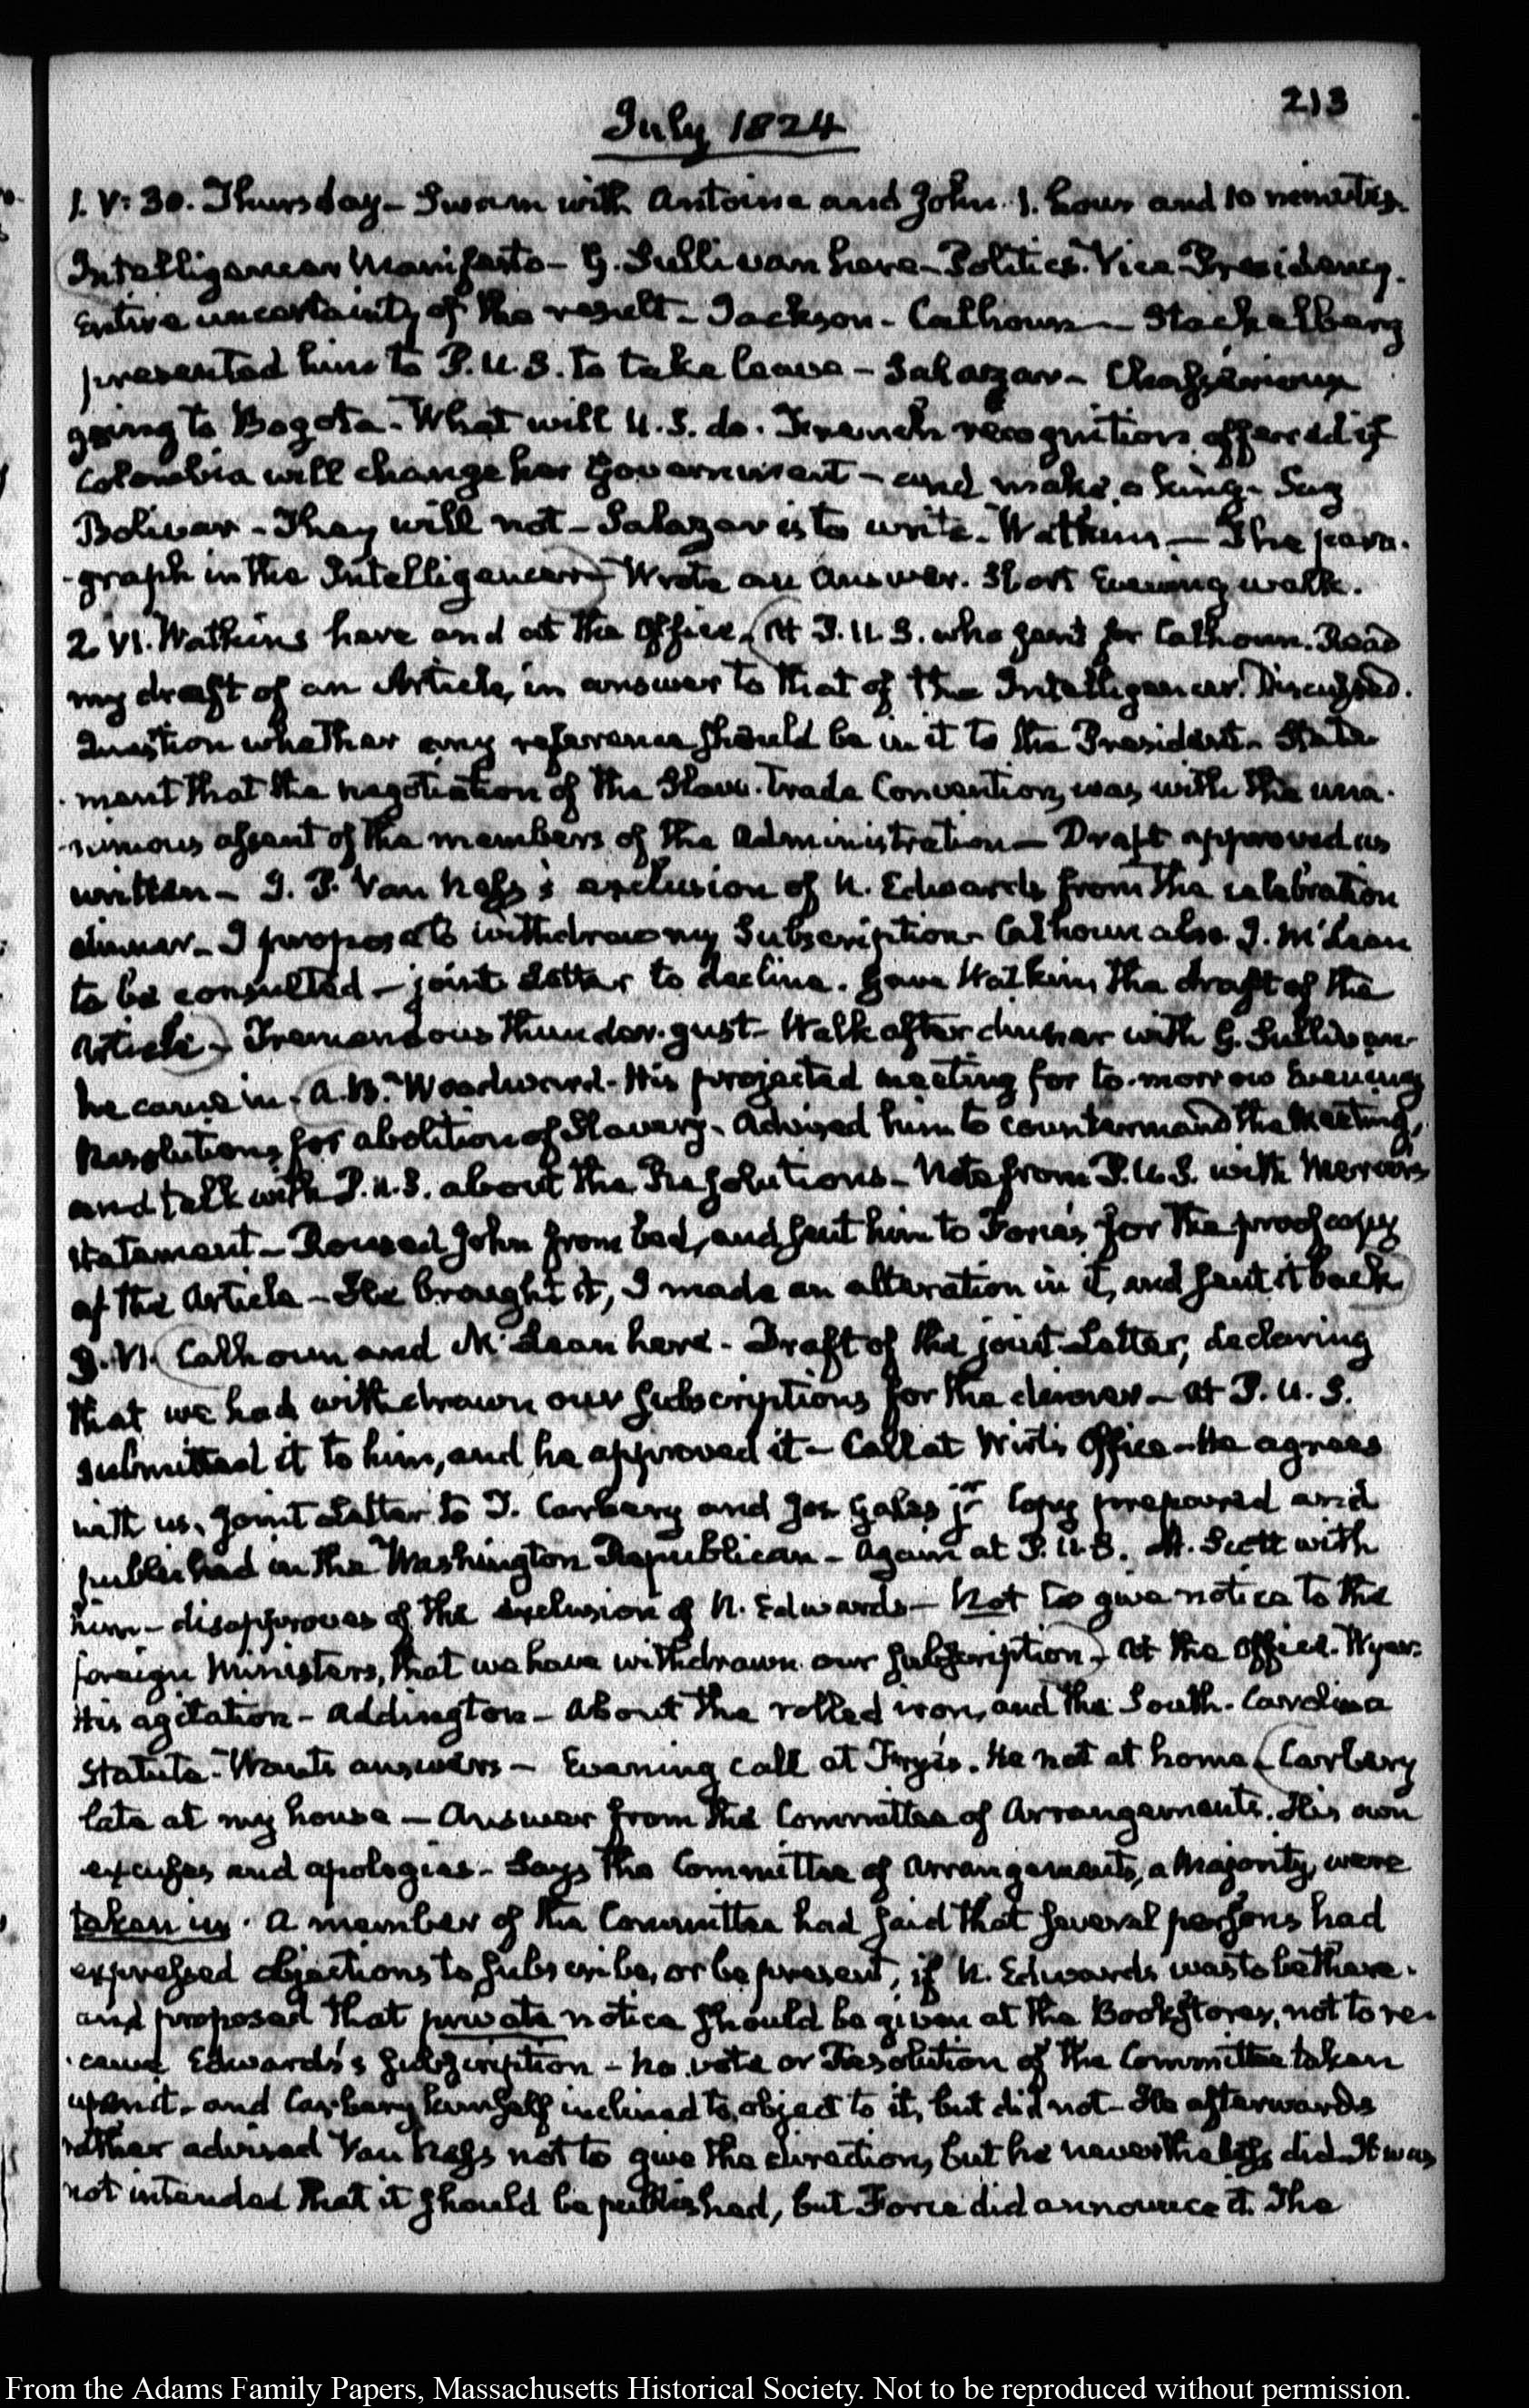 213
July 1824
1. V: 30. Thursday – Swam with Antoine and John. 1. hour and 10 minutes.
Intelligencer Manifesto – G. Sullivan here – Politics. Vice Presidency.
Entire uncertainty of the result – Jackson – Calhoun – Stackelberg
presented him to P.U.S. to take leave – Salazar – Chasserioux
going to Bogota. What will U.S. do. French recognition offered if
Colombia will change her Government – and make a king – Say
Bolivar – They will not – Salazar is to write – Watkins – The para-
-graph in the Intelligencer – Wrote an Answer. Short Evening walk.
2. VI. Watkins here and at the Office. At P.U.S. who sent for Calhoun. Read
my draft of an Article, in answer to that of the Intelligencer. Discussed.
Question whether any reference should be in it to the President – State-
-ment that the negotiation of the Slave-Trade Convention, was with the una-
-nimous assent of the members of the Administration – Draft approved as
written – J. P. Van Ness's exclusion of N. Edwards from the celebration
dinner – I propose to withdraw my Subscription – Calhoun also. J. McLean
to be consulted – joint Letter to decline. Gave Watkins the draft of the
Article – Tremendous thunder-gust – Walk after dinner with G. Sullivan
he came in. A. B. Woodward – His projected meeting for to-morrow Evening
Resolutions for abolition of Slavery – Advised him to countermand the Meeting,
and talk with P.U.S. about the Resolutions – Note from P.U.S. with Mercer's
statement – Roused John from bed, and sent him to Force's for the proof copy
of the Article – He brought it, I made an alteration in it, and sent it back
3. VI. Calhoun and McLean here – Draft of the joint Letter, declaring
that we had withdrawn our subscriptions for the dinner – At P.U.S.
submitted it to him, and he approved it – Call at Wirt's Office – He agrees
with us. Joint Letter to T. Carbery and Jos. Gales jr. Copy prepared and
published in the Washington Republican – Again at P.U.S. A. Scott with
him – disapproves of the exclusion of N. Edwards – Not to give notice to the
foreign Ministers, that we have withdrawn our subscription – At the Office. Wyer.
His agitation – Addington – About the rolled iron, and the South-Carolina
Statute – Wants answers – Evening call at Frye's. He not at home – Carbery
late at my house – Answer from the Committee of Arrangements. His own
excuses and apologies – Says the Committee of Arrangements, a Majority, were
taken in. A member of the Committee had said that several persons had
expressed objections to subscribe, or be present, if N. Edwards was to be there.
and proposed that private notice should be given at the Bookstores, not to re-
-ceive Edwards's subscription – No vote or Resolution of the Committee taken
upon it – and Carbery himself inclined to object to it, but did not – He afterwards
rather advised Van Ness not to give the direction, but he nevertheless did – It was
not intended that it should be published, but Force did announce it. The
From the Adams Family Papers, Massachusetts Historical Society. Not to be reproduced without permission.